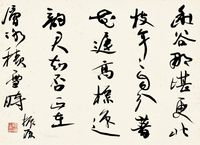 幽谷那堪更北
枝年年自分著
花遲高標逸
韻君知否正在
層冰積雪時